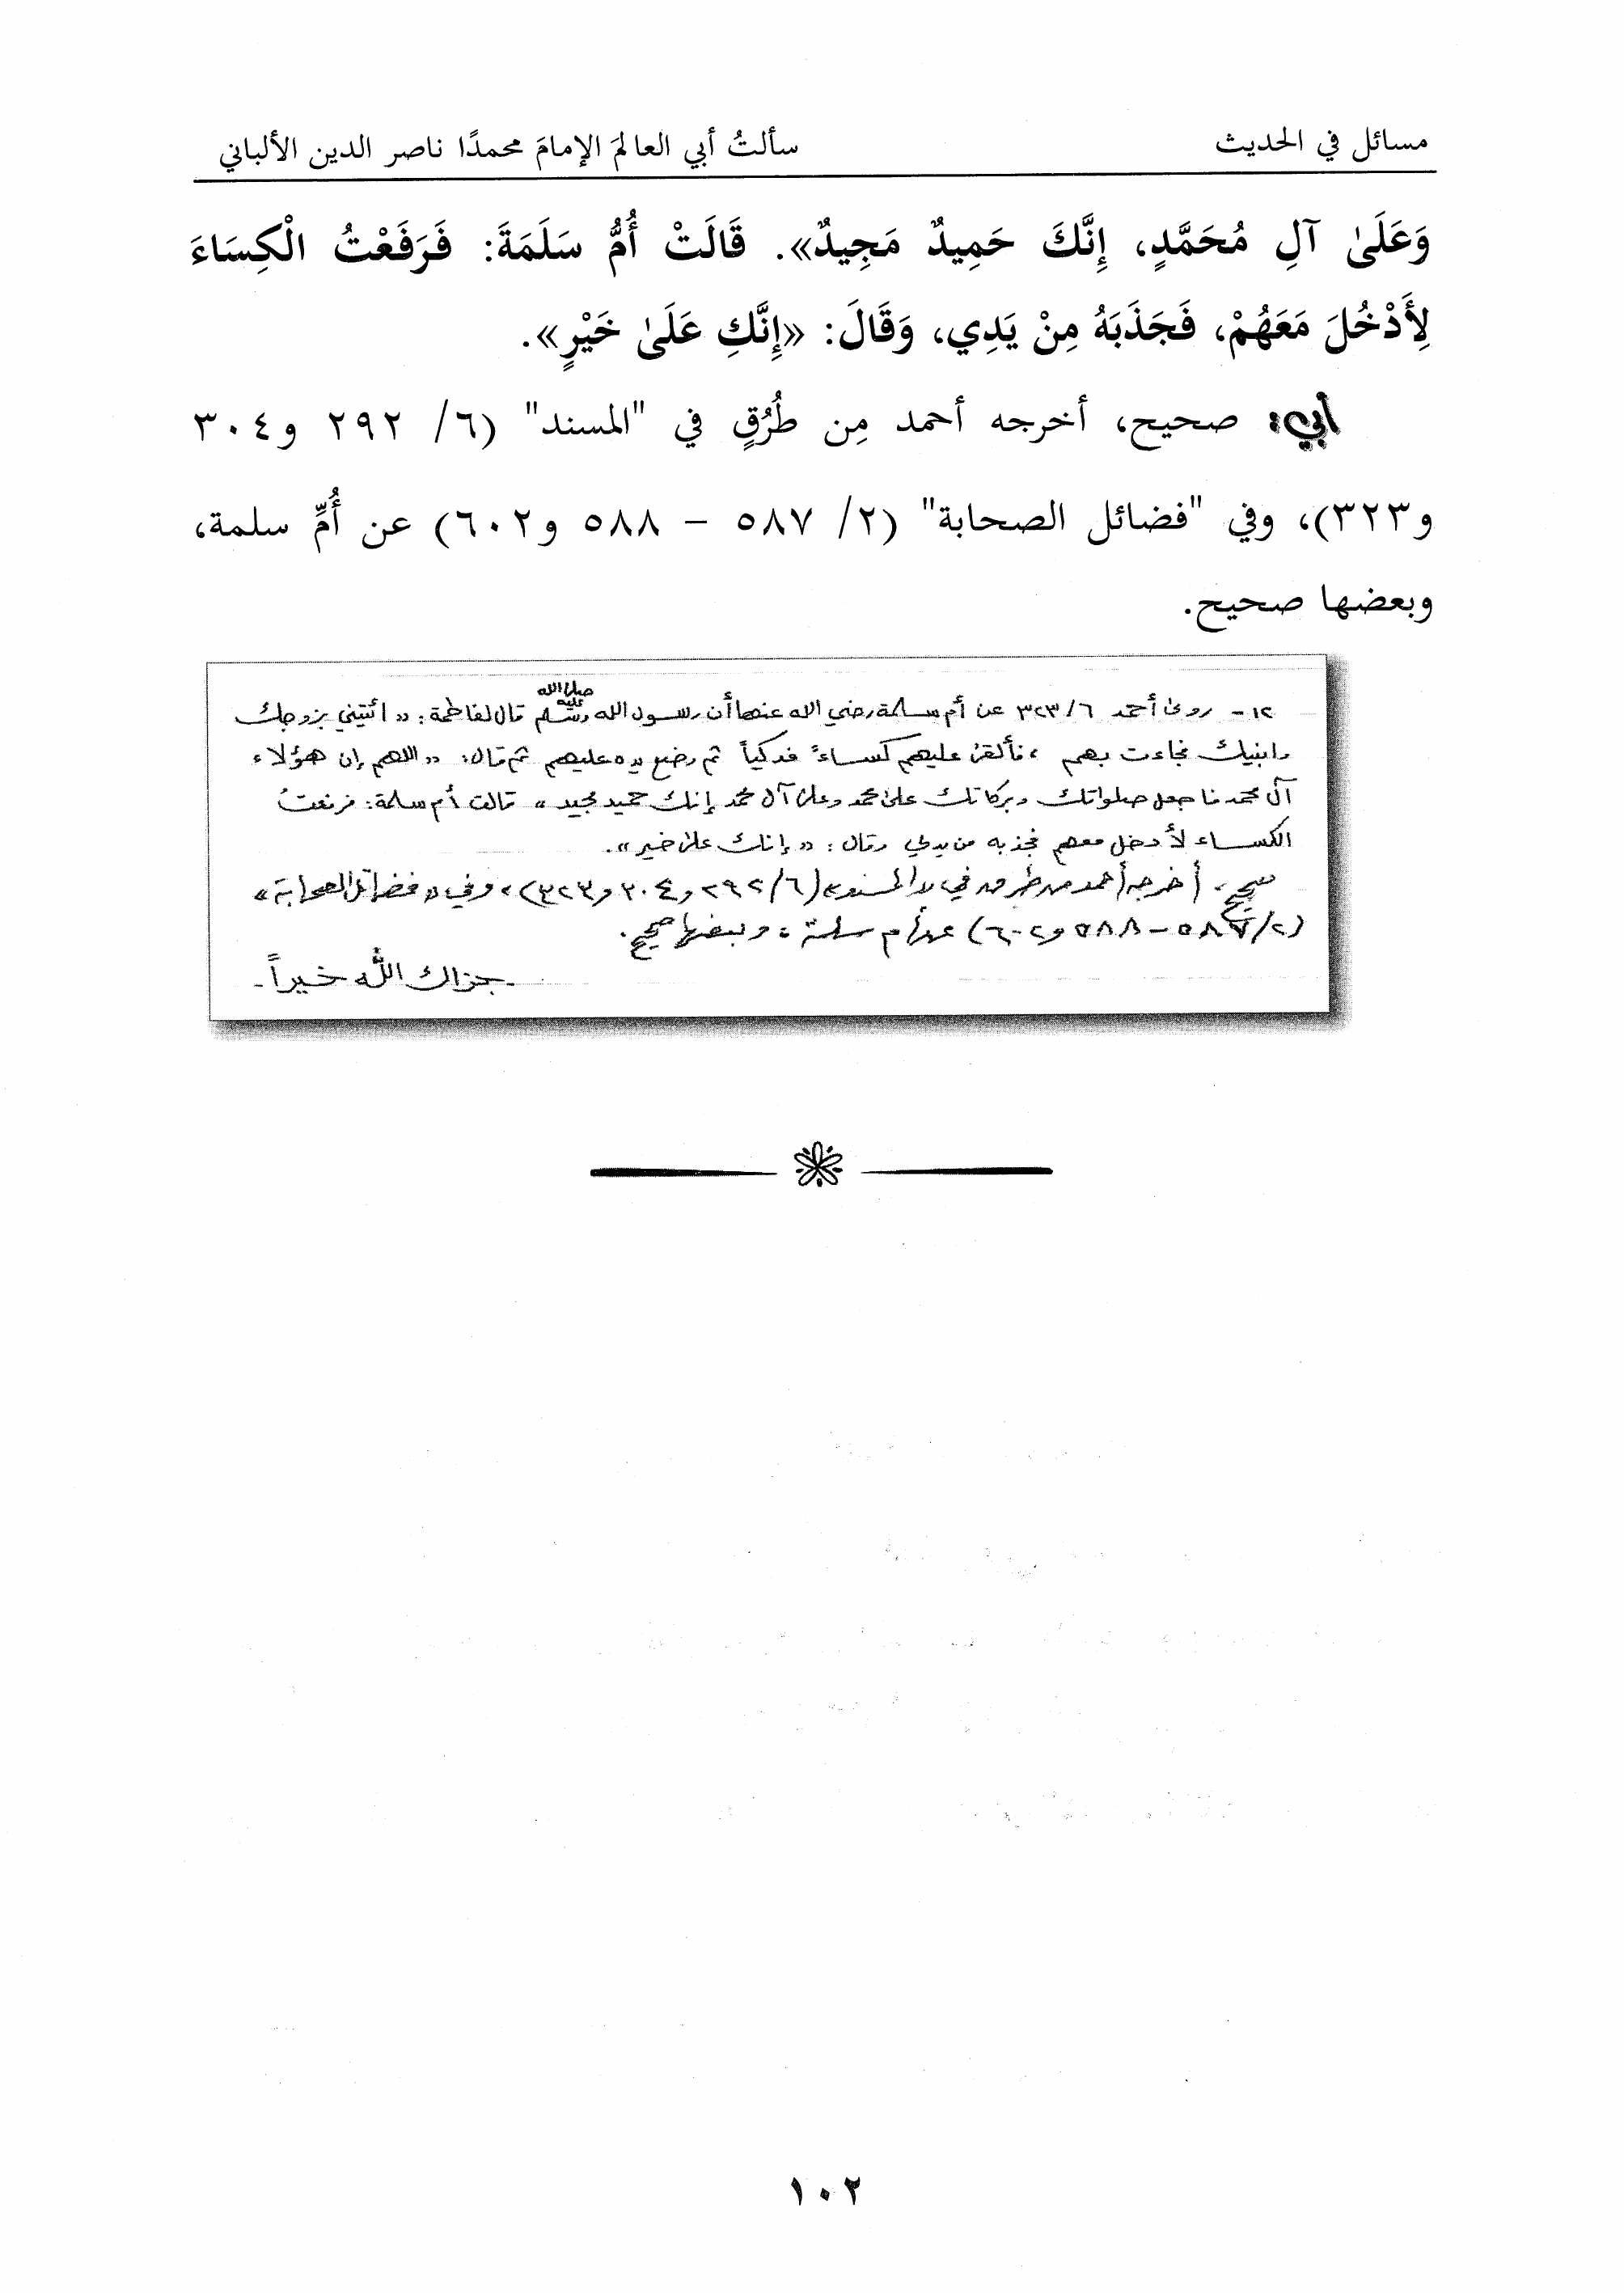 مسائل في الحديث
سألتُ أبي العالمَ الإمامَ محمدًا ناصر الدين الألباني
وَعَلَىٰ آلِ مُحَمَّدٍ، إِنَّكَ حَمِيدٌ مَجِيدٌ». قَالَتْ أُمُّ سَلَمَةَ: فَرَفَعْتُ الْكِسَاءَ
لِأَدْخُلَ مَعَهُمْ، فَجَذَبَهُ مِنْ يَدِي، وَقَالَ: «إِنَّكِ عَلَىٰ خَيْرٍ».
أبي: صحيح، أخرجه أحمد مِن طُرُقٍ في "المسند" (٦/ ٢٩٢ و٣٠٤
و٣٢٣)، وفي "فضائل الصحابة" (٢/ ٥٨٧ – ٥٨٨ و٦٠٢) عن أُمِّ سلمة،
وبعضها صحيح.
١٢- روى أحمد ٦/٣٢٣ عن أم سلمة رضي الله عنها أن رسول الله صلى الله عليه وسلم قال لفاطمة: «ائتيني بزوجك
وابنيك فجاءت بهم، فألقى عليهم كساءً فدكياً ثم وضع يده عليهم ثم قال: «اللهم إن هؤلاء
آل محمد فاجعل صلواتك وبركاتك على محمد وعلى آل محمد إنك حميد مجيد» قالت أم سلمة: فرفعتُ
الكساء لأدخل معهم فجذبه من يدي وقال: «إنك على خير».
صحيح، أخرجه أحمد من طرق في «المسند» (٦/٢٩٢ و٣٠٤ و٣٢٣)، وفي «فضائل الصحابة»
(٢/٥٨٧ – ٥٨٨ و٦٠٢) عن أم سلمة، وبعضها صحيح.
- جزاك الله خيراً -
١٠٢